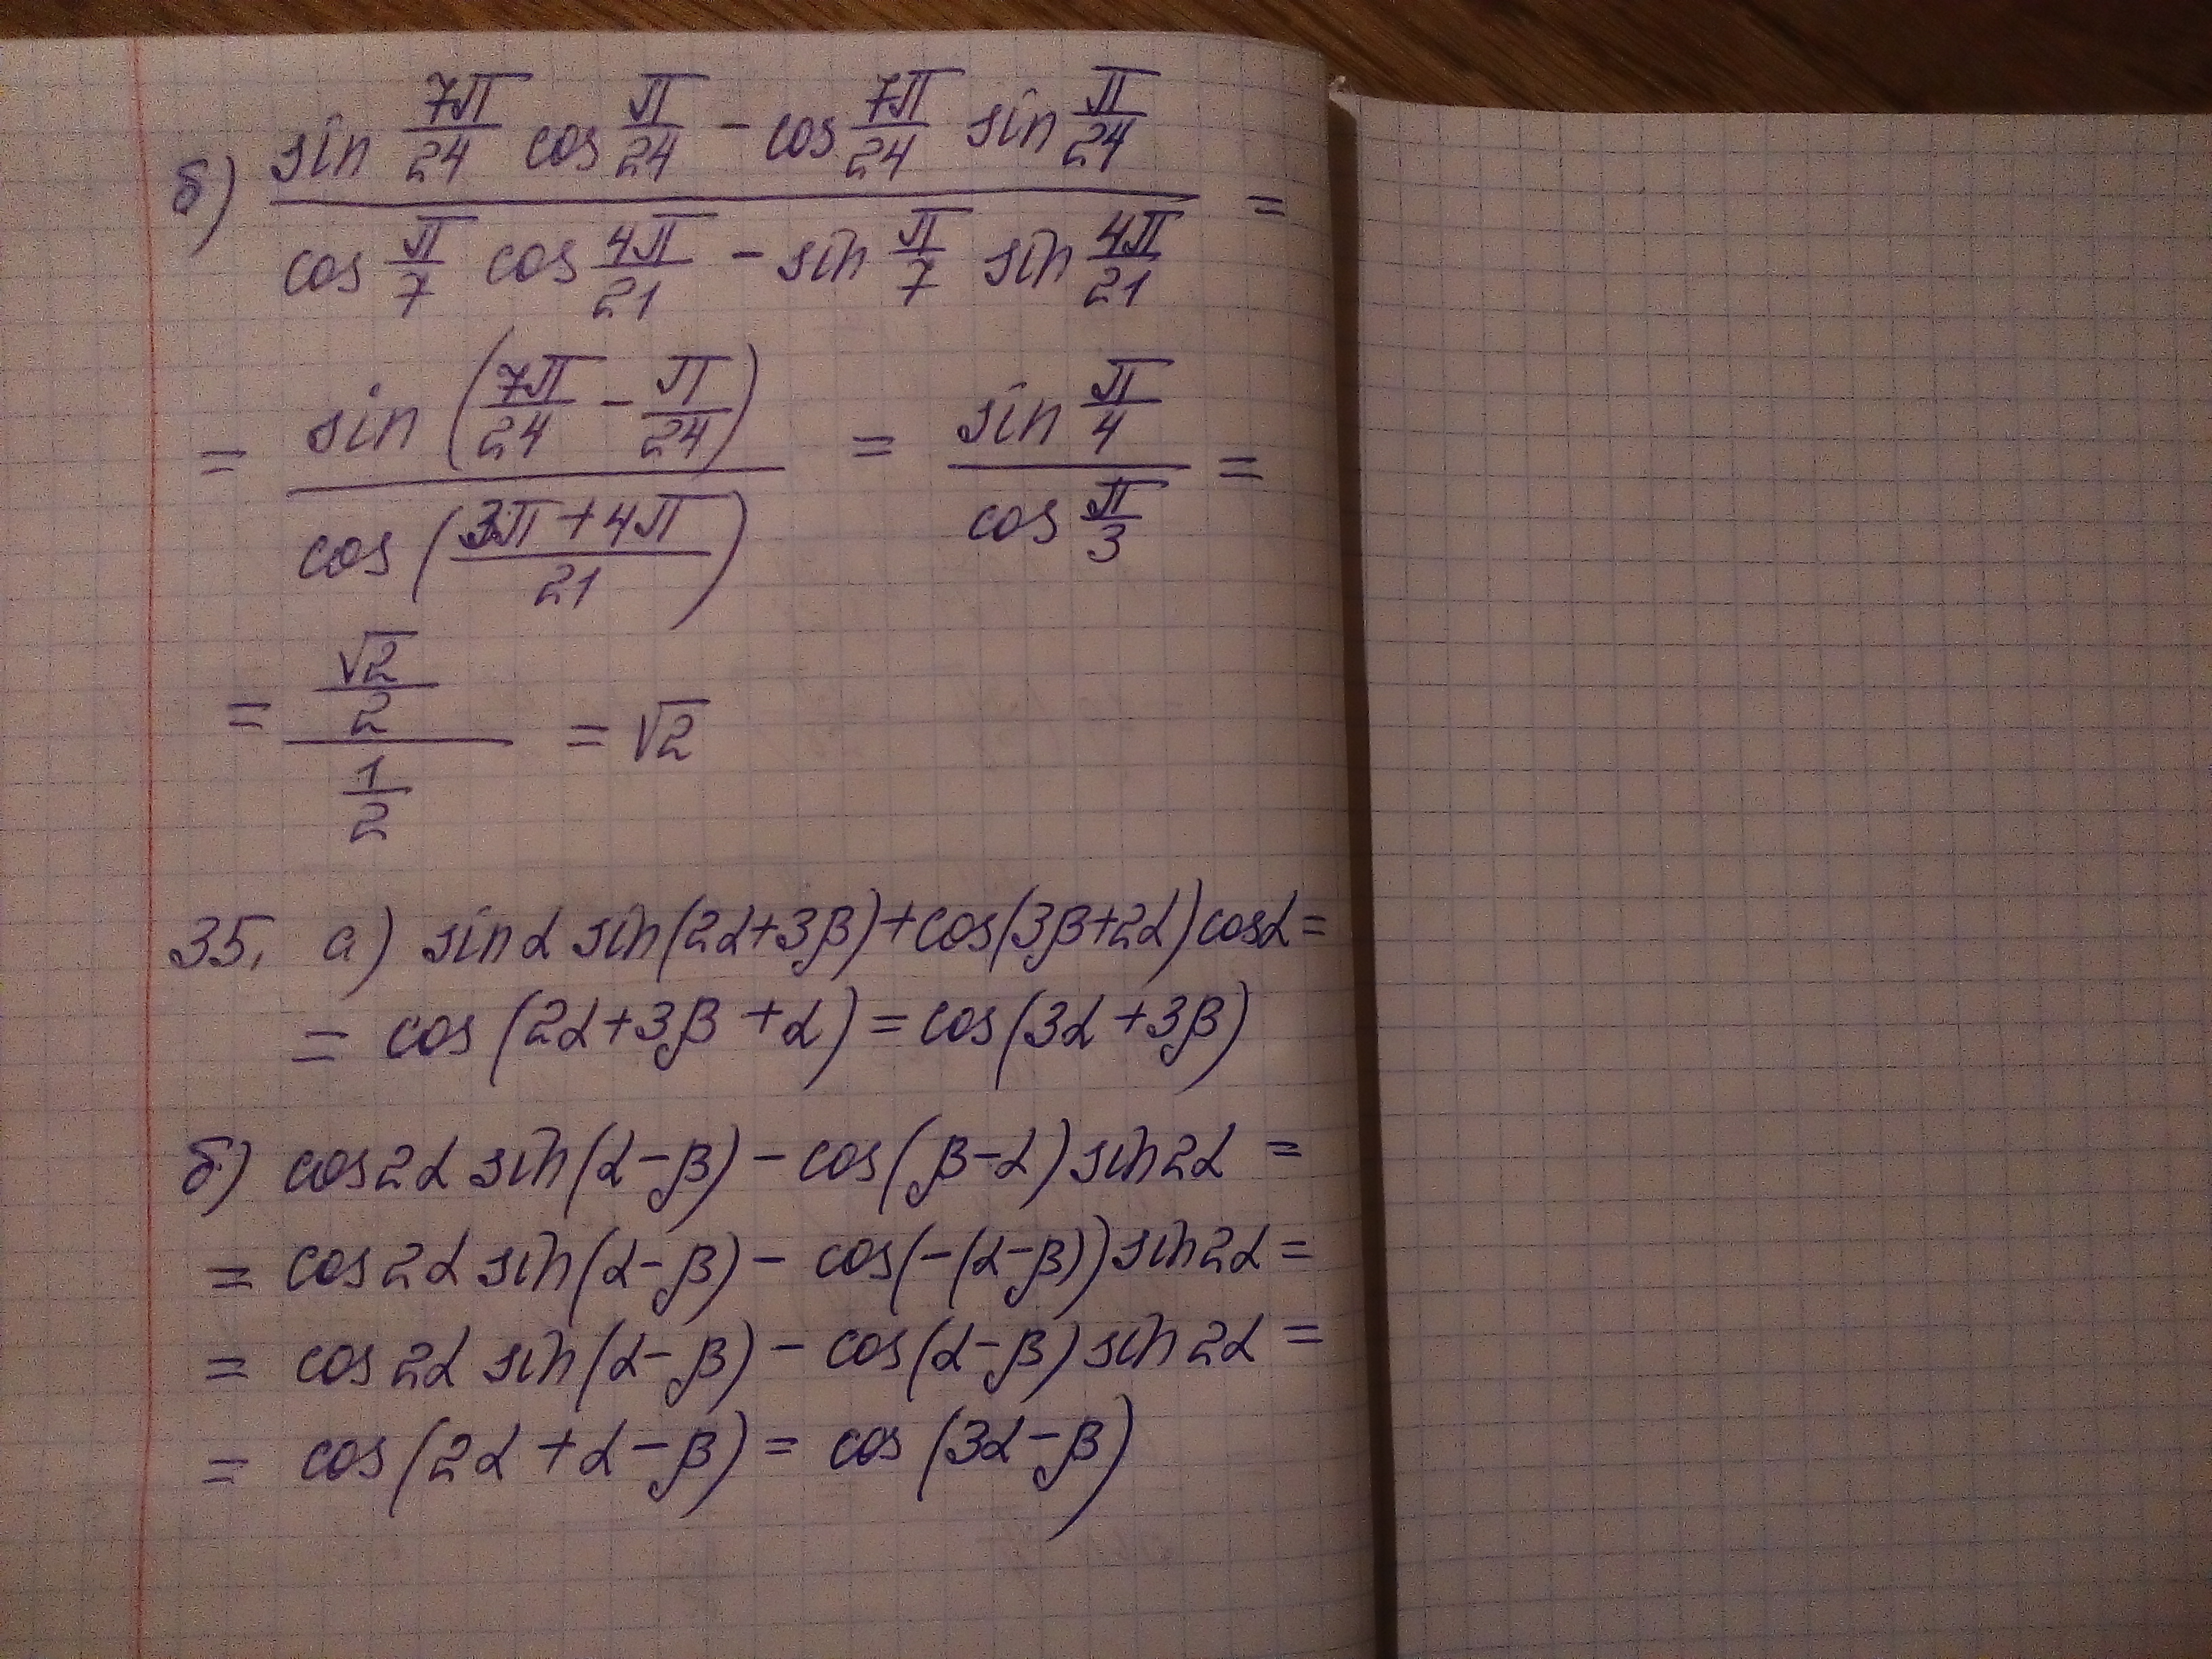 б) (sin 7π/24 cos π/24 - cos 7π/24 sin π/24) / (cos π/7 cos 4π/21 - sin π/7 sin 4π/21) =
= sin (7π/24 - π/24) / cos ((3π + 4π)/21) = sin π/4 / cos π/3 =
= (√2/2) / (1/2) = √2
35. а) sinα sin(2α+3β)+cos(3β+2α)cosα=
= cos(2α+3β+α)=cos(3α+3β)
б) cos2α sin(α-β) - cos(β-α)sin2α =
= cos2α sin(α-β) - cos(-(α-β))sin2α =
= cos2α sin(α-β) - cos(α-β)sin2α =
= cos(2α+α-β) = cos(3α-β)